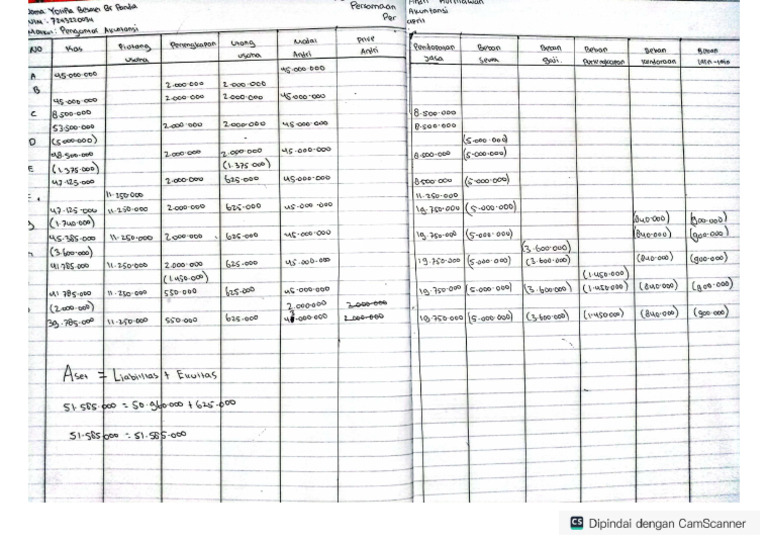 Nama Yovita Besari Br Panda
NIM : 7243220034
Matkul : Pengantar Akuntansi
Persamaan Akuntansi
Per April
NO Kas Piutang usaha Perlengkapan Utang usaha Modal Andri Prive Andri Pendapatan Jasa Beban Sewa Beban Gaji Beban Perlengkapan Beban Kendaraan Beban lain-lain
A 45.000.000 45.000.000
B 2.000.000 2.000.000
45.000.000 2.000.000 2.000.000 45.000.000
C 8.500.000 8.500.000
53.500.000 2.000.000 2.000.000 45.000.000 8.500.000
D (5.000.000) (5.000.000)
48.500.000 2.000.000 2.000.000 45.000.000 8.500.000 (5.000.000)
E (1.375.000) (1.375.000)
47.125.000 2.000.000 625.000 45.000.000 8.500.000 (5.000.000)
11.250.000 11.250.000
47.125.000 11.250.000 2.000.000 625.000 45.000.000 19.750.000 (5.000.000)
(1.740.000) (840.000) (900.000)
45.385.000 11.250.000 2.000.000 625.000 45.000.000 19.750.000 (5.000.000) (840.000) (900.000)
(3.600.000) (3.600.000)
41.785.000 11.250.000 2.000.000 625.000 45.000.000 19.750.000 (5.000.000) (3.600.000) (840.000) (900.000)
(1.450.000) (1.450.000)
41.785.000 11.250.000 550.000 625.000 45.000.000 19.750.000 (5.000.000) (3.600.000) (1.450.000) (840.000) (900.000)
(2.000.000) 2.000.000 2.000.000
39.785.000 11.250.000 550.000 625.000 43.000.000 2.000.000 19.750.000 (5.000.000) (3.600.000) (1.450.000) (840.000) (900.000)
Aset = Liabilitas + Ekuitas
51.585.000 = 50.960.000 + 625.000
51.585.000 = 51.585.000
CS Dipindai dengan CamScanner